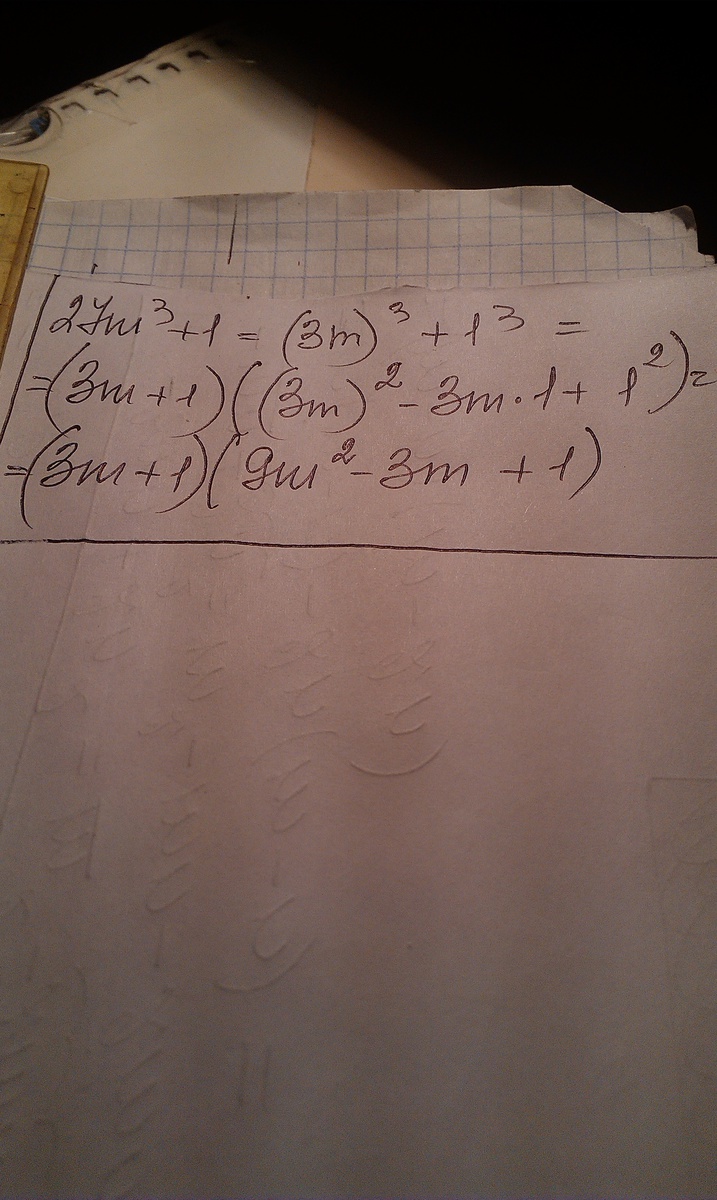 27m³+1 = (3m)³ + 1³ =
=(3m+1)((3m)²-3m·1+ 1²)=
=(3m+1)(9m²-3m +1)